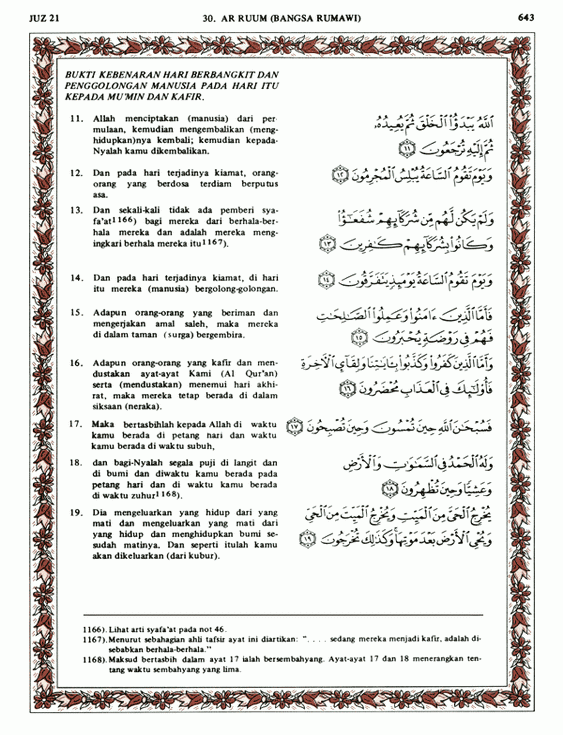 JUZ 21
30. AR RUUM (BANGSA RUMAWI)
643
BUKTI KEBENARAN HARI BERBANGKIT DAN
PENGGOLONGAN MANUSIA PADA HARI ITU
KEPADA MU'MIN DAN KAFIR.
11. Allah menciptakan (manusia) dari per
mulaan, kemudian mengembalikan (meng-
hidupkan)nya kembali; kemudian kepada-
Nyalah kamu dikembalikan.
اللَّهُ يَبْدَؤُا الْخَلْقَ ثُمَّ يُعِيدُهُ
ثُمَّ إِلَيْهِ تُرْجَعُونَ ١١
12. Dan pada hari terjadinya kiamat, orang-
orang yang berdosa terdiam berputus
asa.
وَيَوْمَ تَقُومُ السَّاعَةُ يُبْلِسُ الْمُجْرِمُونَ ١٢
13. Dan sekali-kali tidak ada pemberi sya-
fa'at1166) bagi mereka dari berhala-ber-
hala mereka dan adalah mereka meng-
ingkari berhala mereka itu1167).
وَلَمْ يَكُن لَّهُم مِّن شُرَكَآئِهِمْ شُفَعَٰٓؤُا
وَكَانُوا بِشُرَكَآئِهِمْ كَٰفِرِينَ ١٣
14. Dan pada hari terjadinya kiamat, di hari
itu mereka (manusia) bergolong-golongan.
وَيَوْمَ تَقُومُ السَّاعَةُ يَوْمَئِذٍ يَتَفَرَّقُونَ ١٤
15. Adapun orang-orang yang beriman dan
mengerjakan amal saleh, maka mereka
di dalam taman (surga) bergembira.
فَأَمَّا الَّذِينَ ءَامَنُوا وَعَمِلُوا الصَّٰلِحَٰتِ
فَهُمْ فِي رَوْضَةٍ يُحْبَرُونَ ١٥
16. Adapun orang-orang yang kafir dan men-
dustakan ayat-ayat Kami (Al Qur'an)
serta (mendustakan) menemui hari akhi-
rat, maka mereka tetap berada di dalam
siksaan (neraka).
وَأَمَّا الَّذِينَ كَفَرُوا وَكَذَّبُوا بِـَٔايَٰتِنَا وَلِقَآئِ الْأَخِرَةِ
فَأُولَٰٓئِكَ فِي الْعَذَابِ مُحْضَرُونَ ١٦
17. Maka bertasbihlah kepada Allah di waktu
kamu berada di petang hari dan waktu
kamu berada di waktu subuh,
فَسُبْحَٰنَ اللَّهِ حِينَ تُمْسُونَ وَحِينَ تُصْبِحُونَ ١٧
18. dan bagi-Nyalah segala puji di langit dan
di bumi dan diwaktu kamu berada pada
petang hari dan di waktu kamu berada
di waktu zuhur1168).
وَلَهُ الْحَمْدُ فِي السَّمَٰوَٰتِ وَالْأَرْضِ
وَعَشِيًّا وَحِينَ تُظْهِرُونَ ١٨
19. Dia mengeluarkan yang hidup dari yang
mati dan mengeluarkan yang mati dari
yang hidup dan menghidupkan bumi se-
sudah matinya. Dan seperti itulah kamu
akan dikeluarkan (dari kubur).
يُخْرِجُ الْحَيَّ مِنَ الْمَيِّتِ وَيُخْرِجُ الْمَيِّتَ مِنَ الْحَيِّ
وَيُحْيِ الْأَرْضَ بَعْدَ مَوْتِهَا وَكَذَٰلِكَ تُخْرَجُونَ ١٩
1166). Lihat arti syafa'at pada not 46.
1167). Menurut sebahagian ahli tafsir ayat ini diartikan: ". . . . sedang mereka menjadi kafir, adalah di-
sebabkan berhala-berhala."
1168). Maksud bertasbih dalam ayat 17 ialah bersembahyang. Ayat-ayat 17 dan 18 menerangkan ten-
tang waktu sembahyang yang lima.